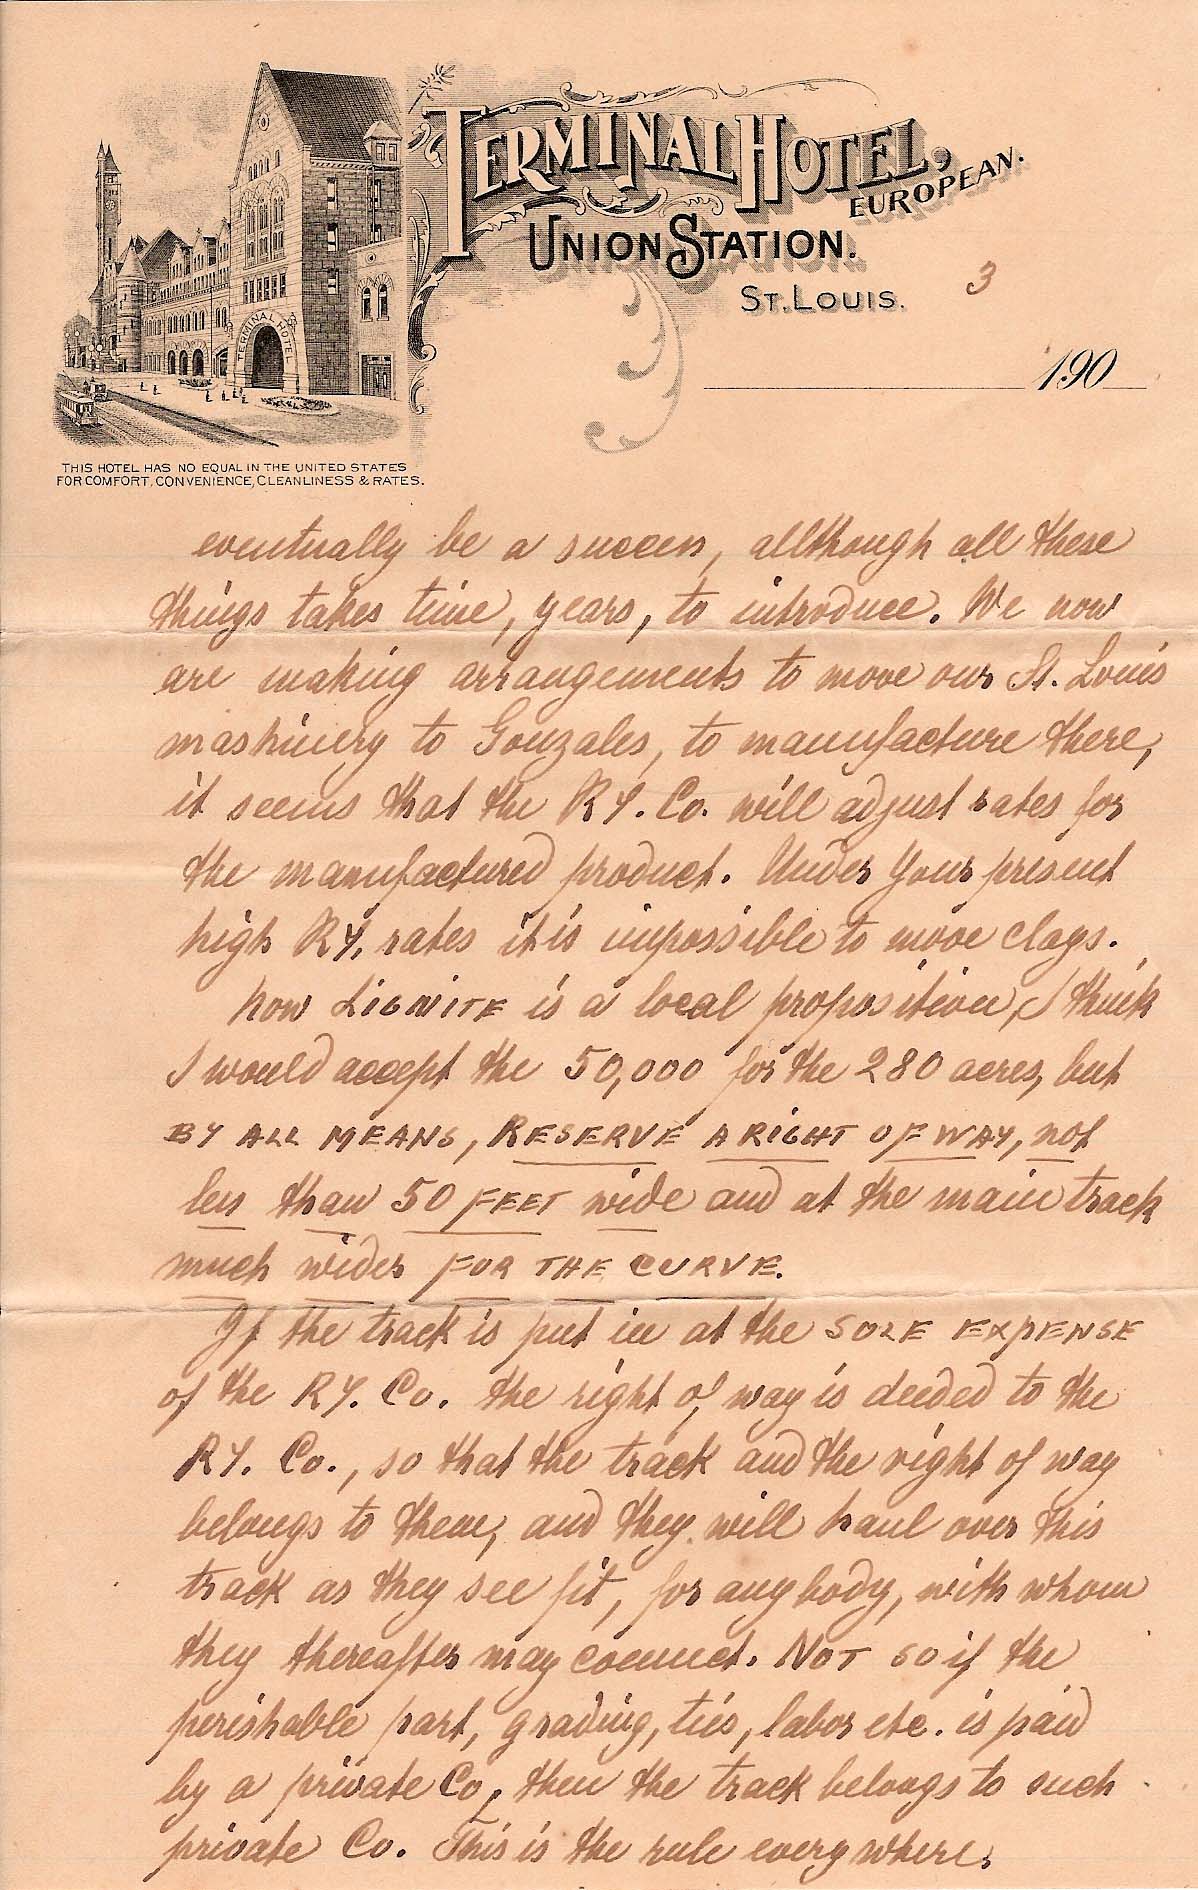 TERMINAL HOTEL,
EUROPEAN.
UNION STATION.
ST. LOUIS.
3
190
TERMINAL HOTEL
THIS HOTEL HAS NO EQUAL IN THE UNITED STATES
FOR COMFORT, CONVENIENCE, CLEANLINESS & RATES.
eventually be a success, allthough all these
things takes time, years, to introduce. We now
are making arrangements to move our St. Louis
mashinery to Gonzales, to manufacture there,
it seems that the RY. Co. will adjust rates for
the manufactured product. Under Your present
high RY. rates it is impossible to move clays.
Now LIGNITE is a local proposition, I think
I would accept the 50,000 for the 280 acres, but
BY ALL MEANS, RESERVE A RIGHT OF WAY, not
less than 50 FEET wide and at the main track
much wider FOR THE CURVE.
If the track is put in at the SOLE EXPENSE
of the RY. Co. the right of way is deeded to the
RY. Co., so that the track and the right of way
belongs to them, and they will haul over this
track as they see fit, for any body, with whom
they thereafter may connect. NOT so if the
perishable part, grading, ties, labor etc. is paid
by a private Co, then the track belongs to such
private Co. This is the rule every where.